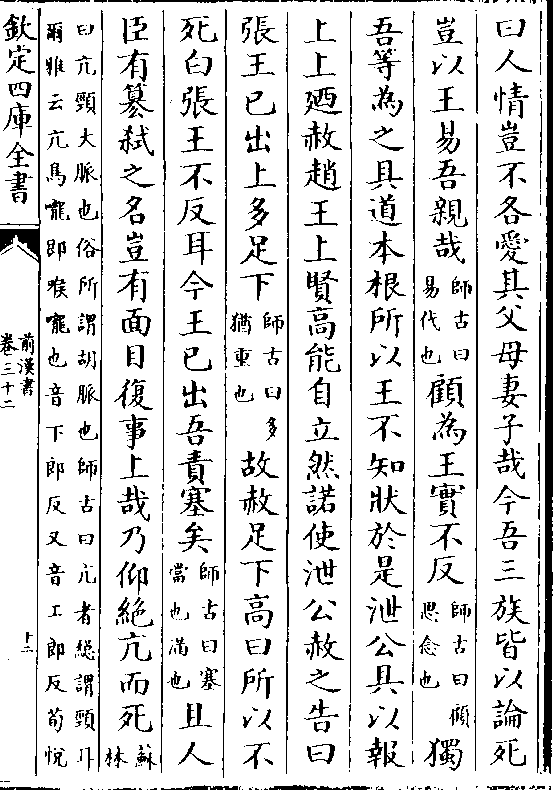 曰人情豈不各愛其父母妻子哉今吾三族皆以論死
豈以王易吾親哉師古曰易代也顧為王實不反師古曰顧思念也獨
吾等為之具道本根所以王不知狀於是泄公具以報
上上廼赦趙王上賢高能自立然諾使泄公赦之告曰
張王已出上多足下師古曰多猶重也故赦足下高曰所以不
死白張王不反耳今王已出吾責塞矣師古曰塞當也滿也且人
臣有簒弑之名豈有面目復事上哉乃仰絶亢而死蘇林
曰亢頸大脈也俗所謂胡脈也師古曰亢者緫謂頸耳
爾雅云亢鳥嚨即喉嚨也音下郎反又音工郎反荀悦
欽定四庫全書
前漢書
卷三十二
十二